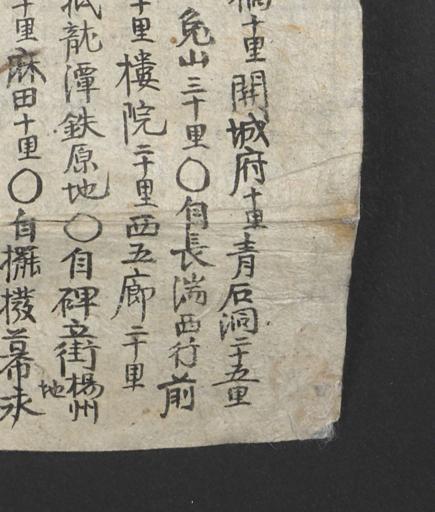 十里開城府十里青石洞二十五里
兔山三十里〇自長湍西行前
十里樓院二十里西五廊二十里
抵龍潭鉄原地〇自碑立街楊州地
十里麻田十里〇自撥幕